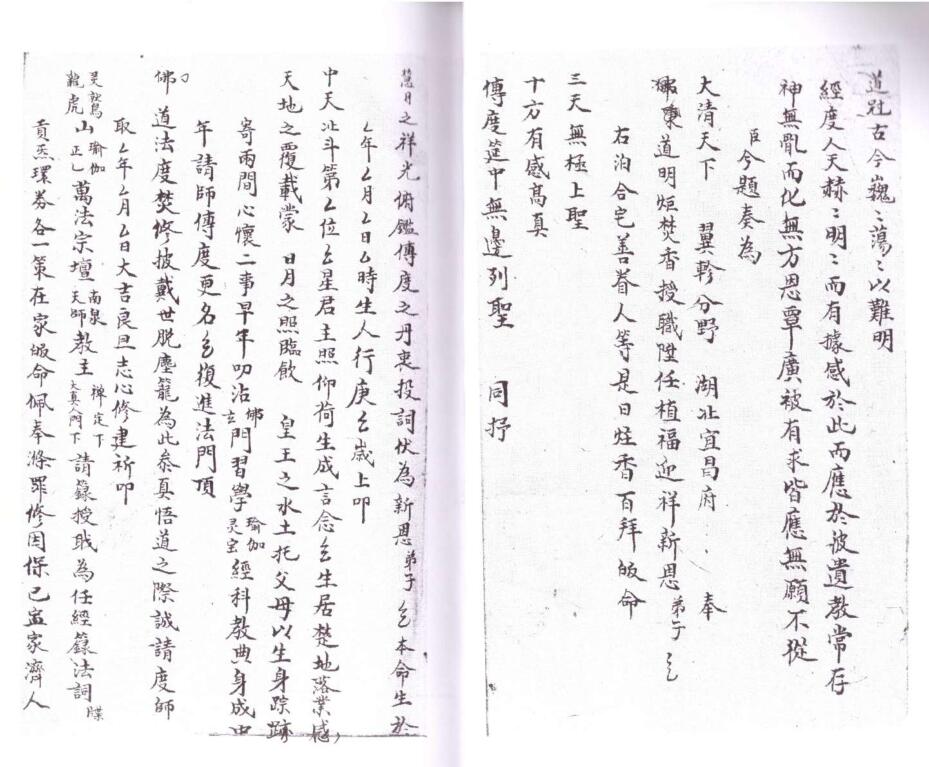 道冠古今巍〻蕩〻以難明
經度人天赫〻明〻而有據感於此而應於彼遺教常存
神無亂而化無方恩覃廣被有求皆應無願不從
臣今題奏為
大清天下 翼軫分野 湖北宜昌府 奉
秉道明炬焚香授職陞任植福迎祥新恩弟子厶
右洎合宅善眷人等是日炷香百拜皈命
三天無極上聖
十方有感高真
傳度筵中無邊列聖 同抒
慧月之祥光俯鑑傳度之丹衷投詞伏為新恩弟子厶本命生於
厶年厶月厶日厶時生人行庚厶歲上叩
中天北斗第厶位厶星君主照仰荷生成言念厶生居楚地落業感
天地之覆載蒙 日月之照臨飲 皇王之水土托父母以生身踪跡
寄兩間心懷二事早年叨沾佛玄門習學瑜伽灵宝經科教典身成中
年請師傳度更名厶復進法門頂
佛 道法度焚修披戴世脫塵籠為此參真悟道之際誠請度師
取厶年厶月厶日大吉良旦志心修建祈叩
灵鷲龍虎山瑜伽正乙萬法宗壇南泉天師教主禅定下大真人門下請籙授职為任經籙法詞牒
貢炁環券各一策在家皈命佩奉滌罪修因保己盖家濟人